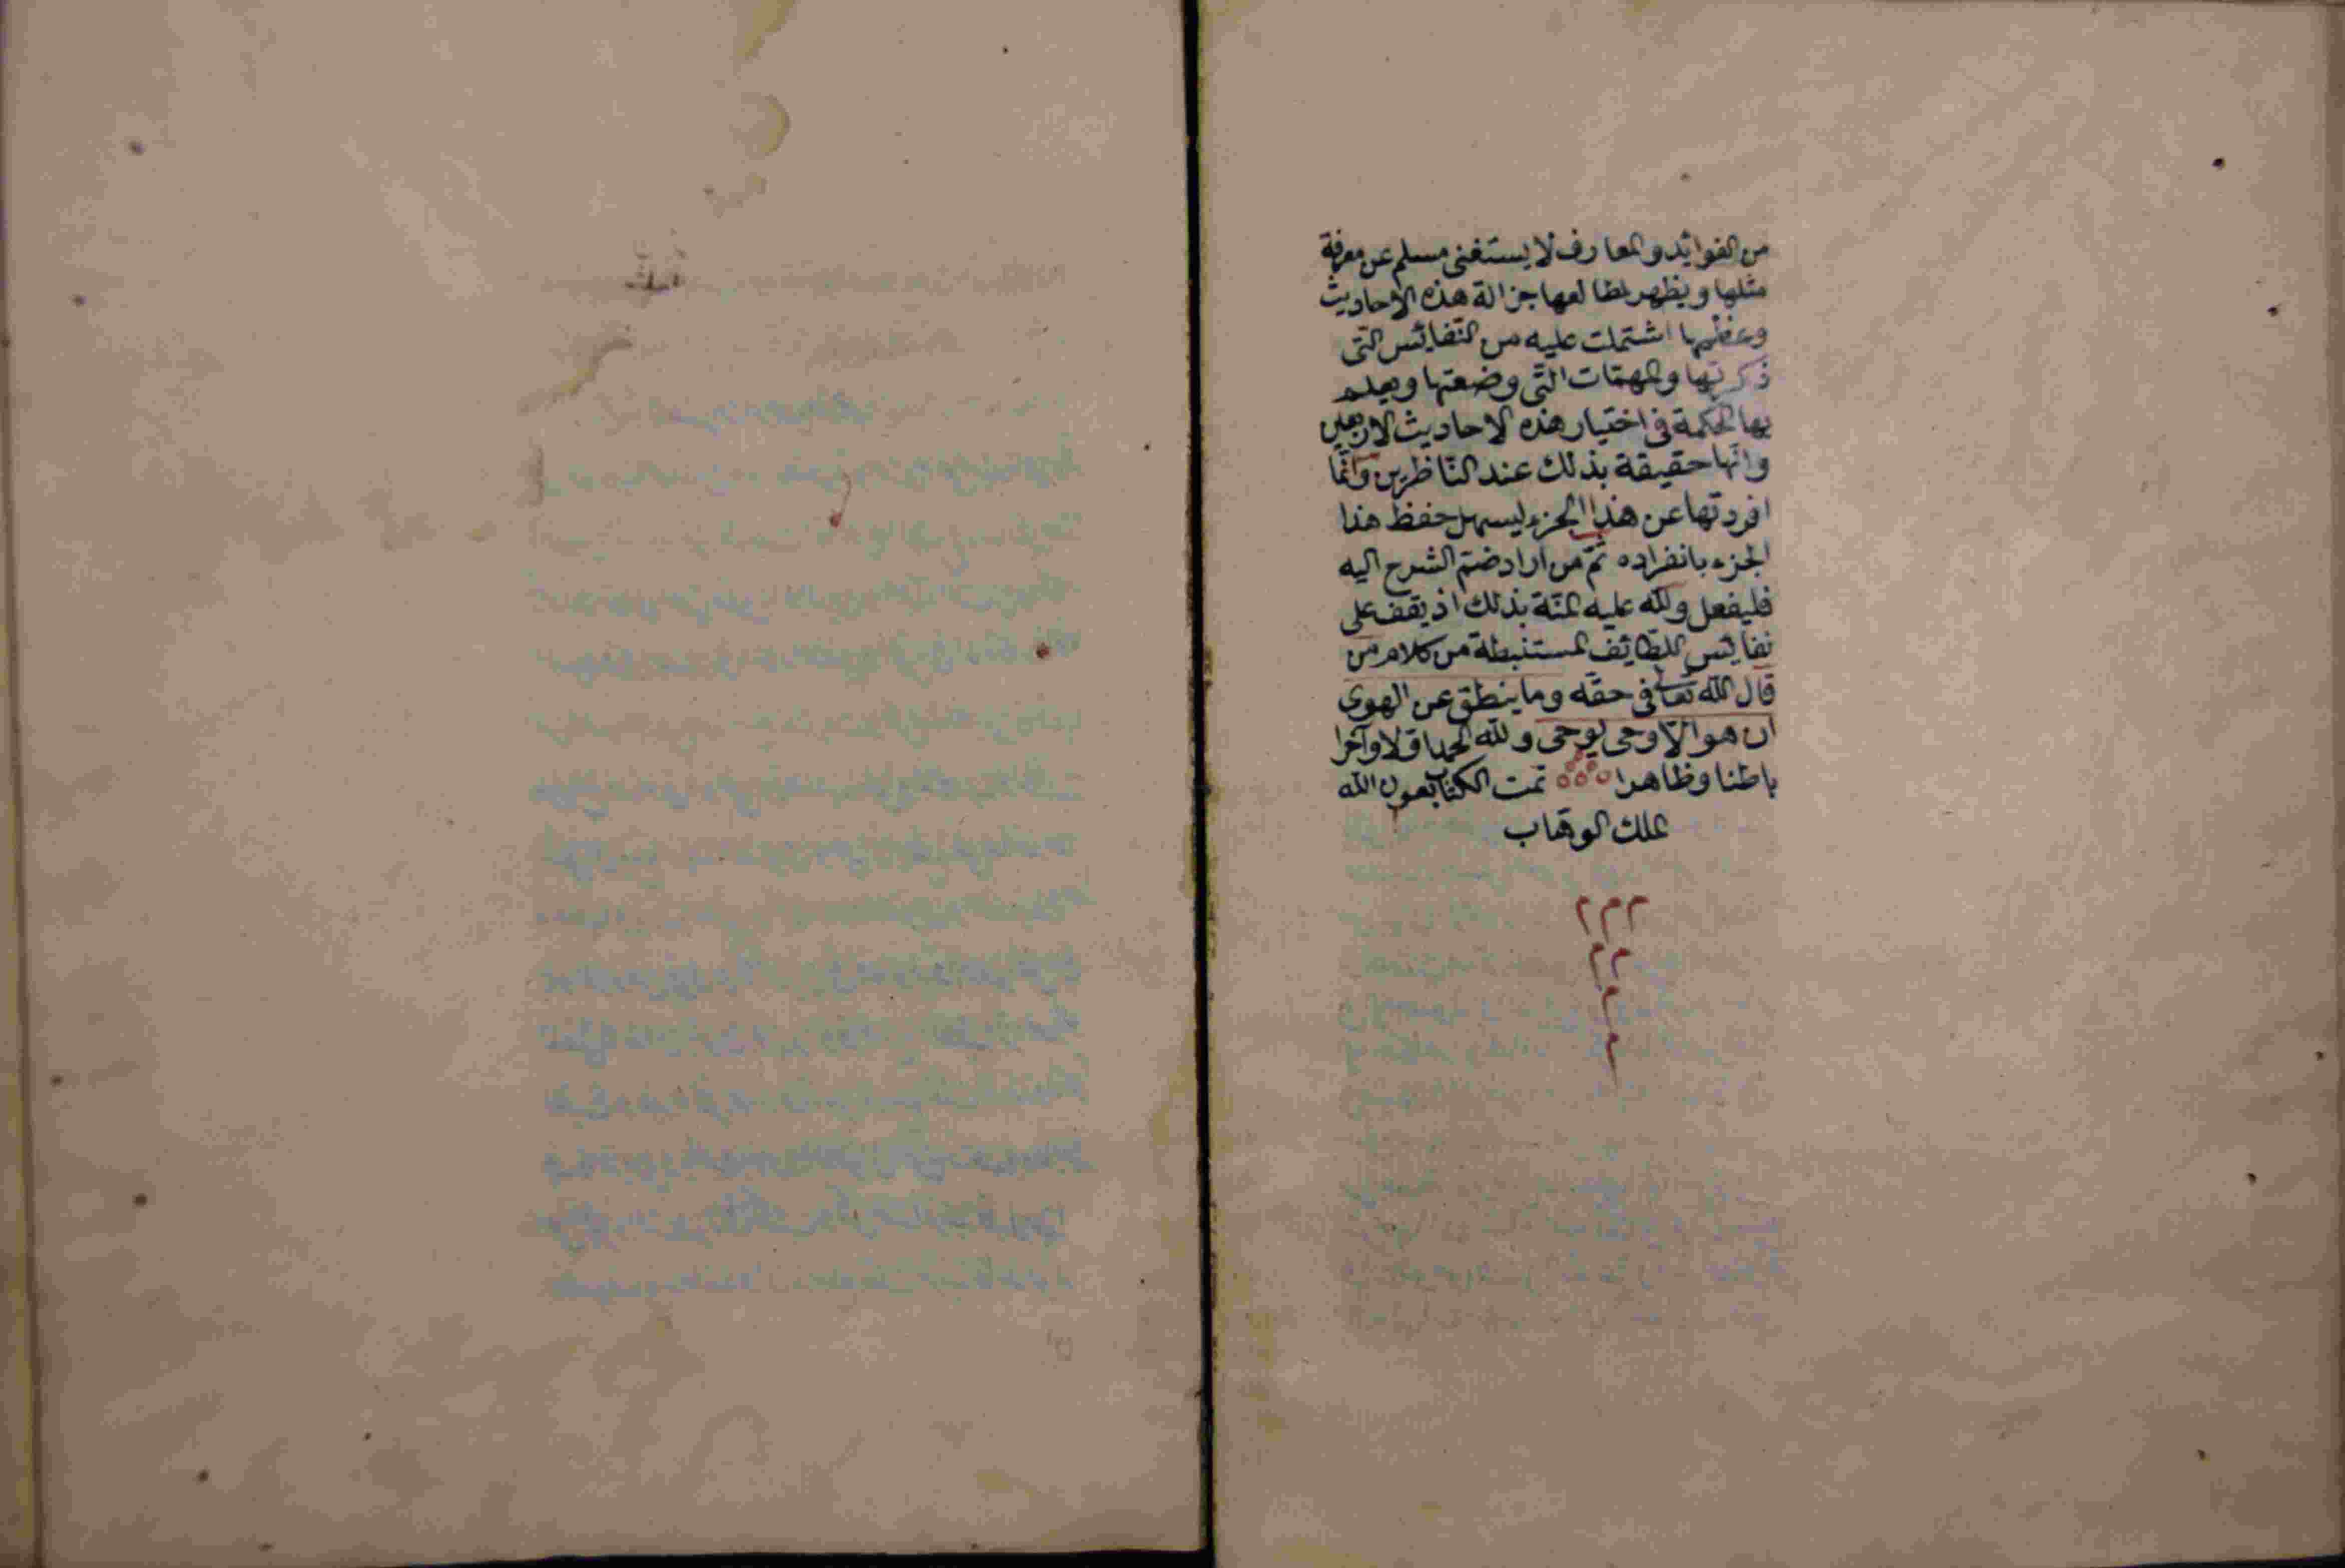 من الفوائد والمعارف لا يستغنى مسلم عن معرفة
مثلها ويظهر لمطالعها جزالة هذه الاحاديث
وعظم ما اشتملت عليه من النّفائس التى
ذكرتها والمهمّات الّتى وضعتها ويعلم
بها الحكمة فى اختيار هذه الاحاديث الاربعين
وانّها حقيقة بذلك عند النّاظرين وانّما
افردتها عن هذا الجزء ليسهل حفظ هذا
الجزء بانفراده ثمّ من اراد ضمّ الشرح اليه
فليفعل ولله عليه المنّة بذلك اذ يقف على
نفايس اللّطايف المستنبطة من كلام من
قال الله تعالى فى حقّه وما ينطق عن الهوى
ان هو الّا وحى يوحى ولله الحمد اوّلا وآخرا
باطنا وظاهرا تمت الكتاب بعون الله
الملك الوهّاب
م م م
م م
م
م